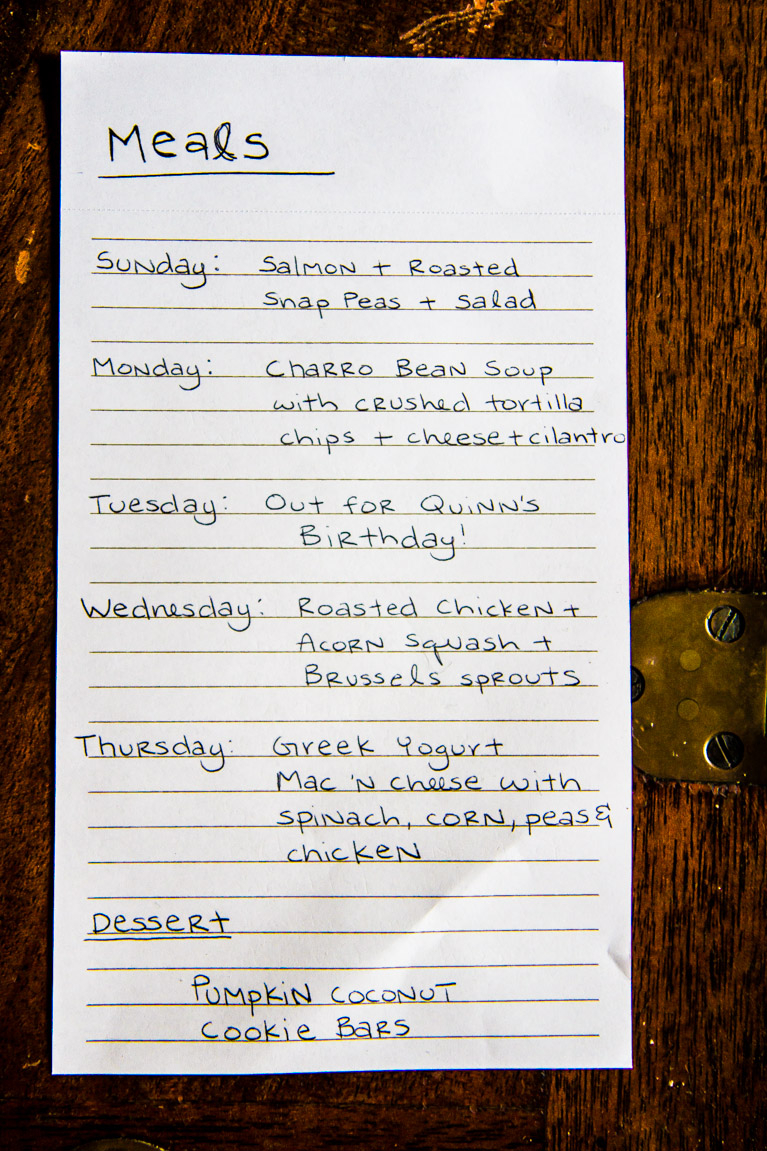 Meals
Sunday: Salmon + Roasted
Snap Peas + Salad
Monday: Charro Bean Soup
with crushed tortilla
chips + cheese + cilantro
Tuesday: Out for Quinn's
Birthday!
Wednesday: Roasted Chicken +
Acorn Squash +
Brussels sprouts
Thursday: Greek Yogurt
Mac 'N cheese with
spinach, corn, peas &
chicken
Dessert
Pumpkin Coconut
Cookie Bars